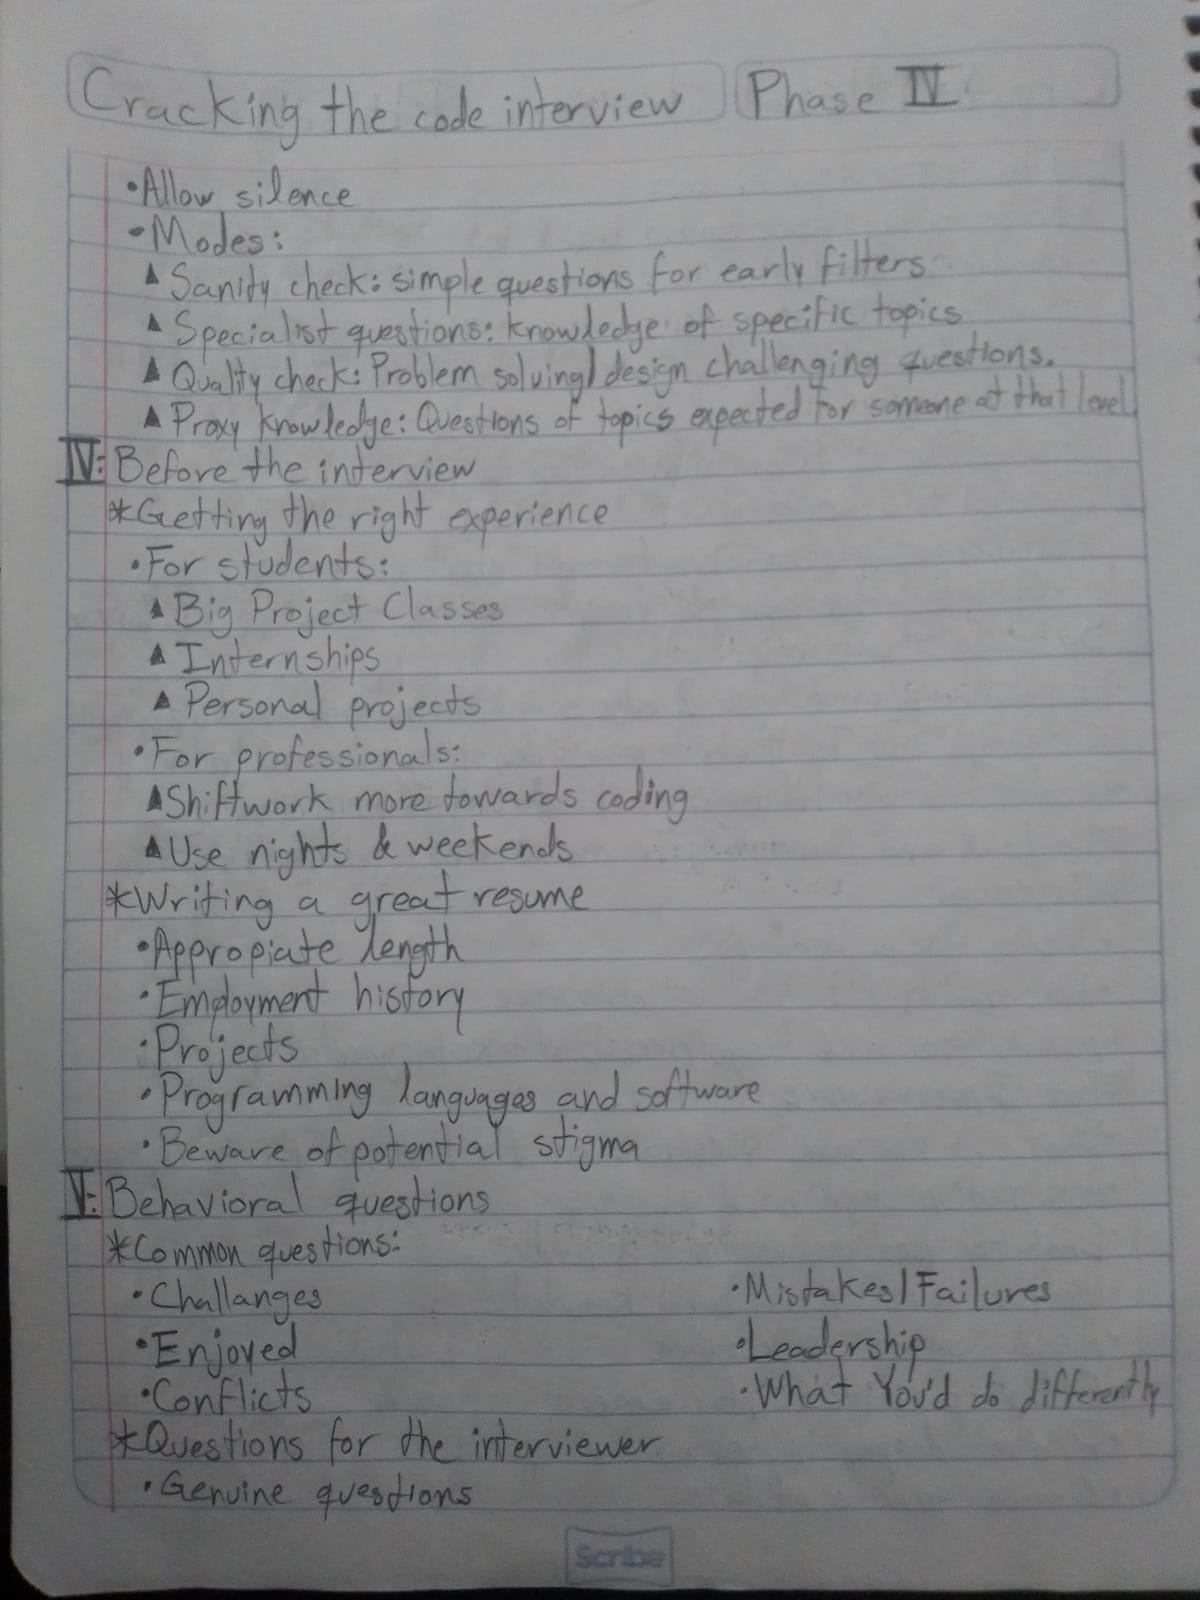 Cracking the code interview Phase IV
•Allow silence
•Modes:
▲Sanity check: simple questions for early filters
▲Specialist questions: knowledge of specific topics
▲Quality check: Problem solving/design challenging questions.
▲Proxy knowledge: Questions of topics expected for someone at that level
IV: Before the interview
*Getting the right experience
•For students:
▲Big Project Classes
▲Internships
▲Personal projects
•For professionals:
▲Shiftwork more towards coding
▲Use nights & weekends
*Writing a great resume
•Appropiate length
•Employment history
•Projects
•Programming languages and software
•Beware of potential stigma
V: Behavioral questions
*Common questions:
•Challanges
•Enjoyed
•Conflicts
•Mistakes/Failures
•Leadership
•What You'd do differently
*Questions for the interviewer
•Genuine questions
Scribe